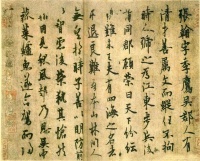 張翰字季鷹吳郡人有
清才善屬文而縱任不拘
時人號之為江東步兵後
謂同郡顧榮曰天下紛紜
禍難未已夫有四海之名者求
退良難吾本山林間人
無望於時子善以明防前
以智慮後榮執其手愴
然翰因見秋風起乃思吳中
菰菜鱸魚遂命駕而歸